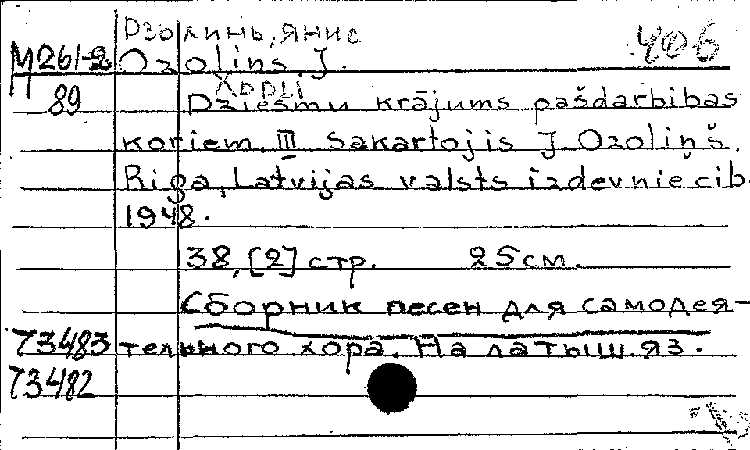 Озолинь, Янис
M261-2 Ozoliņs, J. 406
Хоры
89 Dziesmu krājums pašdarbibas
koriem. III Sakartojis J. Ozoliņš.
Riga, Latvijas valsts izdevniecib.
1948.
38, [2] стр. 25 см.
Сборник песен для самодея-
73483 тельного хора. На латыш. яз.
73482